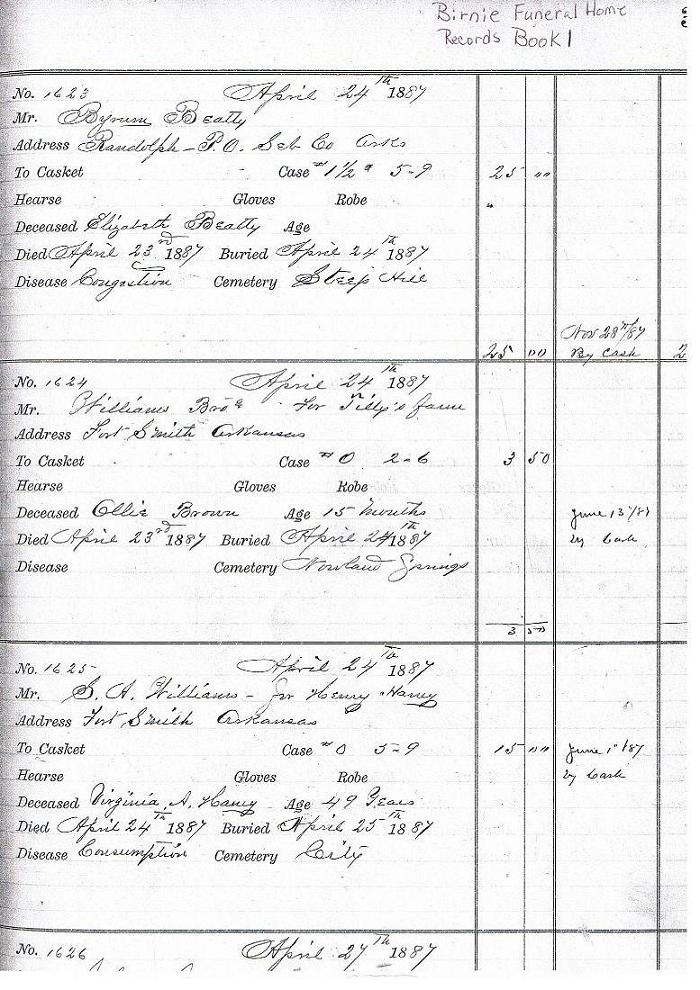 Birnie Funeral Home
Records Book 1
No. 1623 April 24th 1887
Mr. Byrum Beatty
Address Randolph - P.O. Seb Co Arks
To Casket Case # 1 1/2 " 5-9 25 ""
Hearse Gloves Robe "
Deceased Elizabeth Beatty Age
Died April 23rd 1887 Buried April 24th 1887
Disease Congestion Cemetery Steep Hill
Nov 28th/87
25 00 By Cash 2
No. 1624 April 24th 1887
Mr. Williams Bros For Tilly's farm
Address Fort Smith Arkansas
To Casket Case # 0 2-6 3 50
Hearse Gloves Robe
Deceased Ollie Brown Age 15 Months June 13/87
Died April 23rd 1887 Buried April 24th 1887 by Cash
Disease Cemetery Nowland Springs
3 50
No. 1625 April 24th 1887
Mr. S. A. Williams - for Henry Haney
Address Fort Smith Arkansas
To Casket Case # 0 5-9 15 "" June 1st/87
Hearse Gloves Robe by Cash
Deceased Virginia A. Haney Age 49 Years
Died April 24th 1887 Buried April 25th 1887
Disease Consumption Cemetery City
No. 1626 April 27th 1887